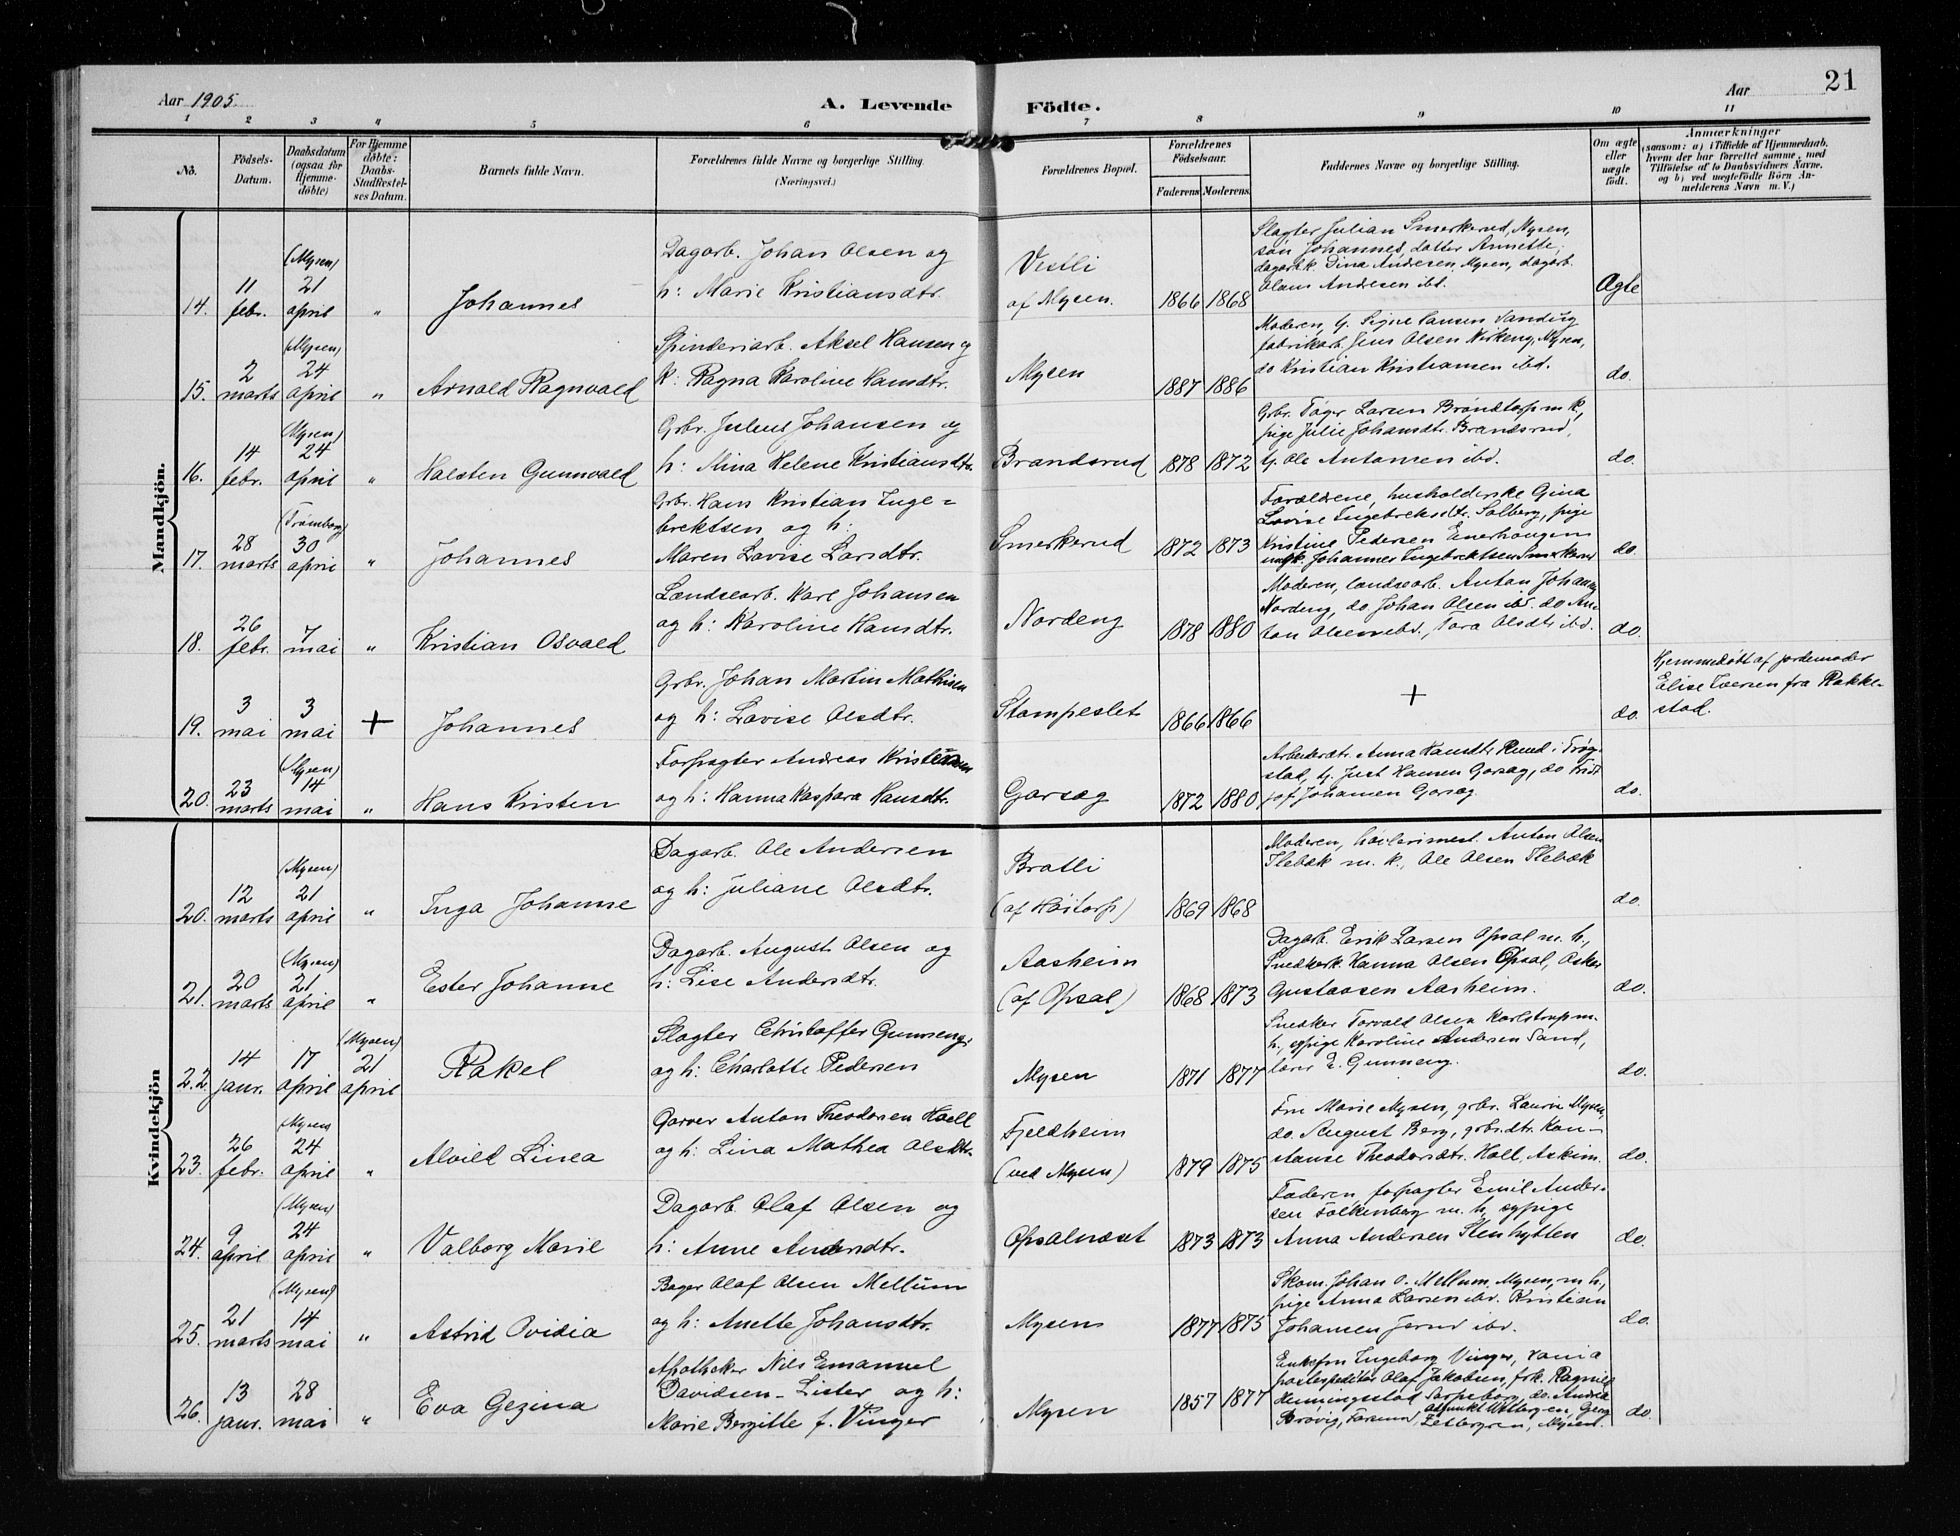 21
Aar 1905.
A. Levende Födte.
Aar
1 2 3 4 5 6 7 8 9 10 11
No.
Födsels-Datum.
Daabsdatum (ogsaa for Hjemmedöbte)
For Hjemmedöbte: Daabs-Stadfestelses Datum.
Barnets fulde Navn.
Forældrenes fulde Navne og borgerlige Stilling.
(Næringsvei.)
Forældrenes Bopæl.
Forældrenes Födselsaar.
Faderens. Moderens.
Faddernes Navne og borgerlige Stilling.
Om ægte eller uægte födt.
Anmærkninger
(saasom: a) i Tilfælde af Hjemmedaab, hvem der har forrettet samme, med Tilföielse af to Daabsvidners Navne, og b) ved uægtefödte Börn Anmelderens Navn m. V.)
Mandkjön.
14. 11 febr. (Mysen) 21 april " Johannes
Dagarb. Johan Olsen og
h: Marie Kristiansdtr.
Vestli
af Mysen. 1866 1868
Slagter Julian Smerkerud, Mysen,
søn Johannes, datter Annette,
dagarb.k. Dina Andresen, Mysen, dagarb.
Olaus Andresen ibd.
Ægte
15. 2 marts (Mysen) 24 april " Arnold Ragnvald
Spinderiarb. Aksel Hansen og
k: Ragna Karoline Hansdtr.
Mysen 1887 1886
Moderen, Signe Hansen
fabrikarb. Jens Olsen Kirkeng, Mysen,
do Kristian Kristiansen ibd.
do.
16. 14 febr. (Mysen) 24 april " Halsten Gunnvald
Grbr. Julius Johansen og
h: Mina Helene Kristiansdtr.
Brandsrud 1878 1872
Grbr. Tøger Larsen Brøndtorp m k,
pige Julie Johansdtr. Brandsrud,
Ole Antonsen ibd.
do.
17. 28 marts (Trømborg) 30 april " Johannes
Grbr. Hans Kristian Inge=
brektsen og h:
Maren Lovise Larsdtr.
Smerkerud 1872 1873
Forældrene, husholderske Gina
Lovise Ingebreksdtr. Solberg, pige
Kristine Pedersen Enerhaugen
ungk. Johannes Ingebrektsen Smerkerud
do.
18. 26 febr. 7 mai " Kristian Osvald
Landsearb. Karl Johansen
og h: Karoline Hansdtr.
Nordeng 1878 1880
Moderen, landsearb. Anton Johans
Nordeng, do Johan Olsen ibd. do An-
ton Olsen ibd., Tora Olsdtr ibd.
do.
19. 3 mai 3 mai + Johannes
Grbr. Johan Martin Mathisen
og h: Lovise Olsdtr.
Stampeslet 1866 1866
+
do.
Hjemmedøbt af jordemoder
Elise Iversen fra Rakke-
stad.
20. 23 marts (Mysen) 14 mai " Hans Kristen
Forpagter Andreas Kristiansen
og h: Hanna Kaspara Hansdtr.
Garsæg 1872 1880
Arbeiderdtr. Anna Hansdtr Ruud i Trøg-
stad, Just Hansen Garsæg, do Fridt
jof Johansen Garsæg.
do.
Kvindekjön
20. 12 marts (Mysen) 21 april " Inga Johanne
Dagarb. Ole Andersen
og h: Juliane Olsdtr.
Bratli
(af Høitorp) 1869 1868
Moderen, høvlerimest. Anton Olsen
Slebæk m. k., Ole Olsen Slebæk
do.
21. 20 marts (Mysen) 21 april " Ester Johanne
Dagarb. August Olsen og
h: Lise Andersdtr.
Aasheim
(af Opsal) 1868 1873
Dagarb. Erik Larsen Opsal m. h.,
Snedkerk. Hanna Olsen Opsal, Oskar
Gustavsen Aasheim.
do.
22. 14 janr. 17 april (Mysen) 21 april Rakel
Slagter Christoffer Gunneng
og h: Charlotte Pedersen
Mysen 1871 1877
Snedker Torvald Olsen Karlstrup m.
h., sypige Karoline Andersen Sand,
lærer E. Gunneng.
do.
23. 26 febr. (Mysen 24 april " Alvild Linea
Garver Anton Theodorsen Holl
og h: Lina Mathea Olsdtr.
Fjeldheim
(ved Mysen) 1879 1875
Fru Marie Mysen, grbr. Laurin Mysen,
do. August Berg, grbr.dtr. Kon-
stanse Theodorsdtr. Holl, Askim.
do.
24. 9 april (Mysen) 24 april " Valborg Marie
Dagarb. Olaf Olsen og
h: Anne Andersdtr.
Opsalnæset 1873 1873
Faderen, forpagter Emil Ander-
sen Folkenborg m. h, sypige
Anna Andersen Stenhytten
do.
25. 21 marts (Mysen) 14 mai " Astrid Ovidia
Bager Olaf Olsen Mellum
og h: Anette Johansdtr.
Mysen 1877 1875
Skom. Johan O. Mellum, Mysen, m h.,
pige Anna Larsen ibd. Kristian
Johansen ibd.
do.
26. 13 janr. 28 mai " Eva Gezina
Apotheker Nils Emanuel
Davidsen-Lister og h:
Marie Bergitte f. Vinger
Mysen 1857 1877
Enkefru Ingeborg Vinger,
postexpeditør Olaf Jakobsen, frk. Ragnie
Henningsstad Sarpsborg, do. Andrea
Brøvig, Farsund, Georg
Zettergren, Mysen.
do.